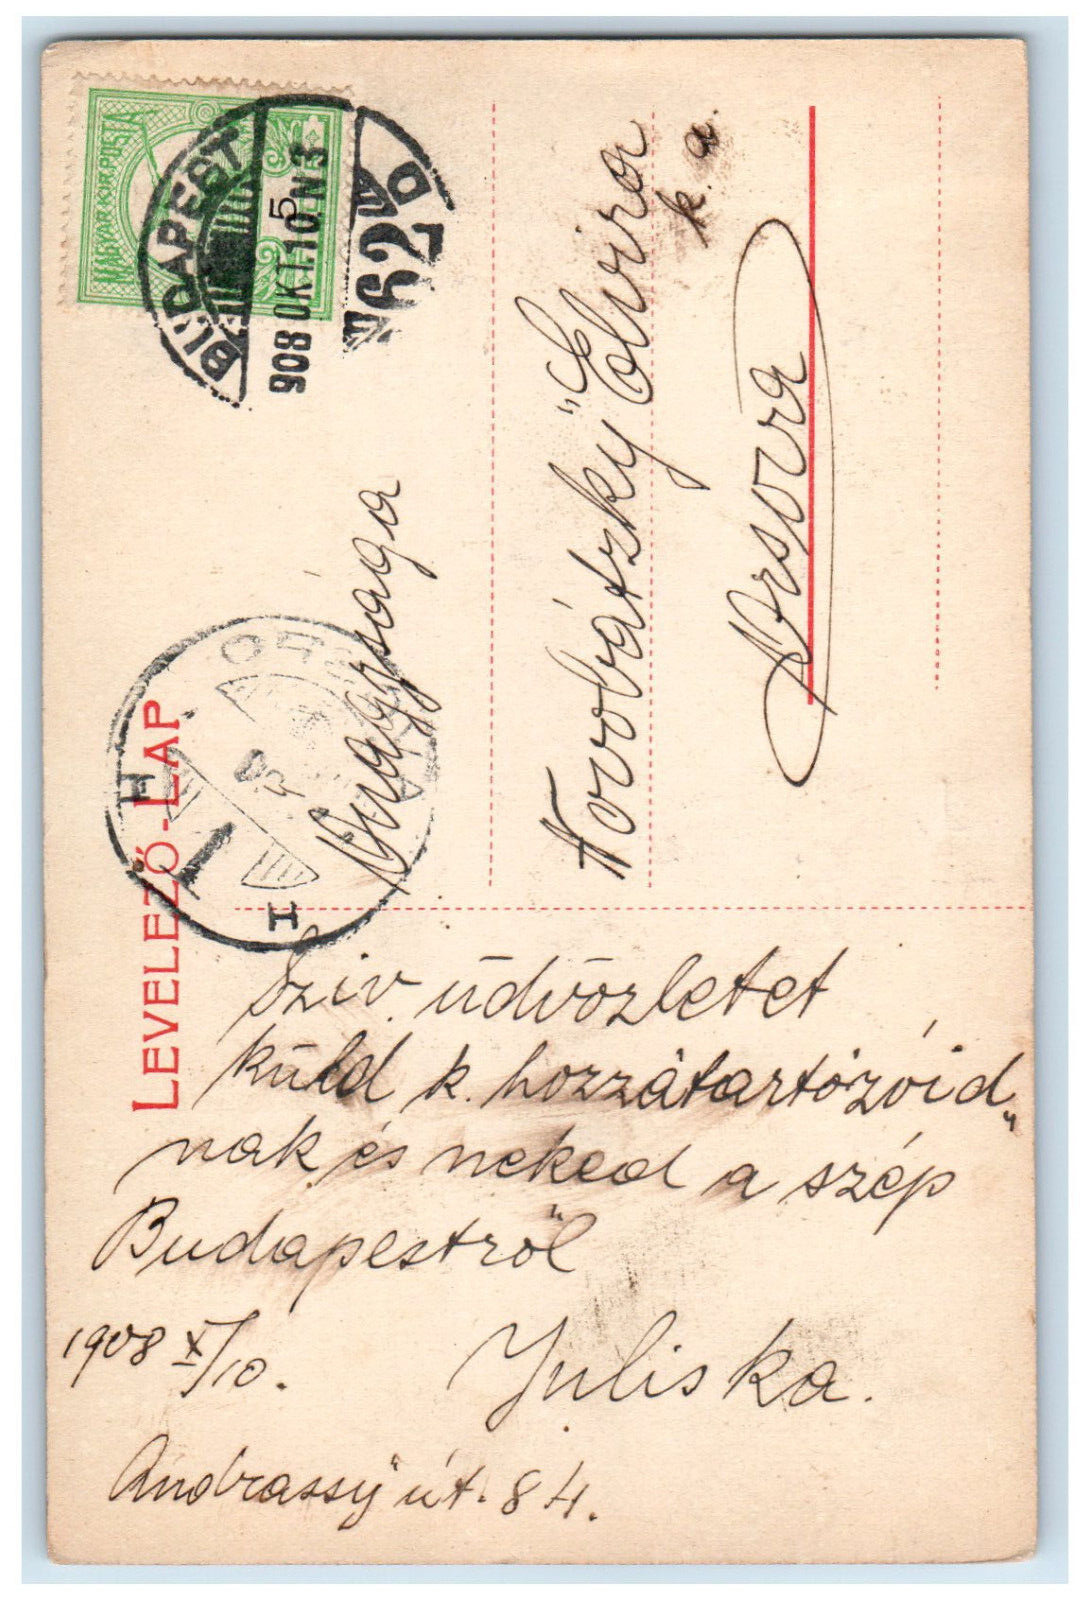 MAGYAR KIR. POSTA
5
BUDAPEST
908 OKT. 10. N 3
62
D
LEVELEZŐ-LAP
ORS
H
I
Nagysága
Elvira
k. a.
Orsova
Sziv. üdvözletet
küld k. hozzátartózóid„
nak és neked a szép
Budapestről
1908 X/10.
Juliska.
Andrassy út. 84.